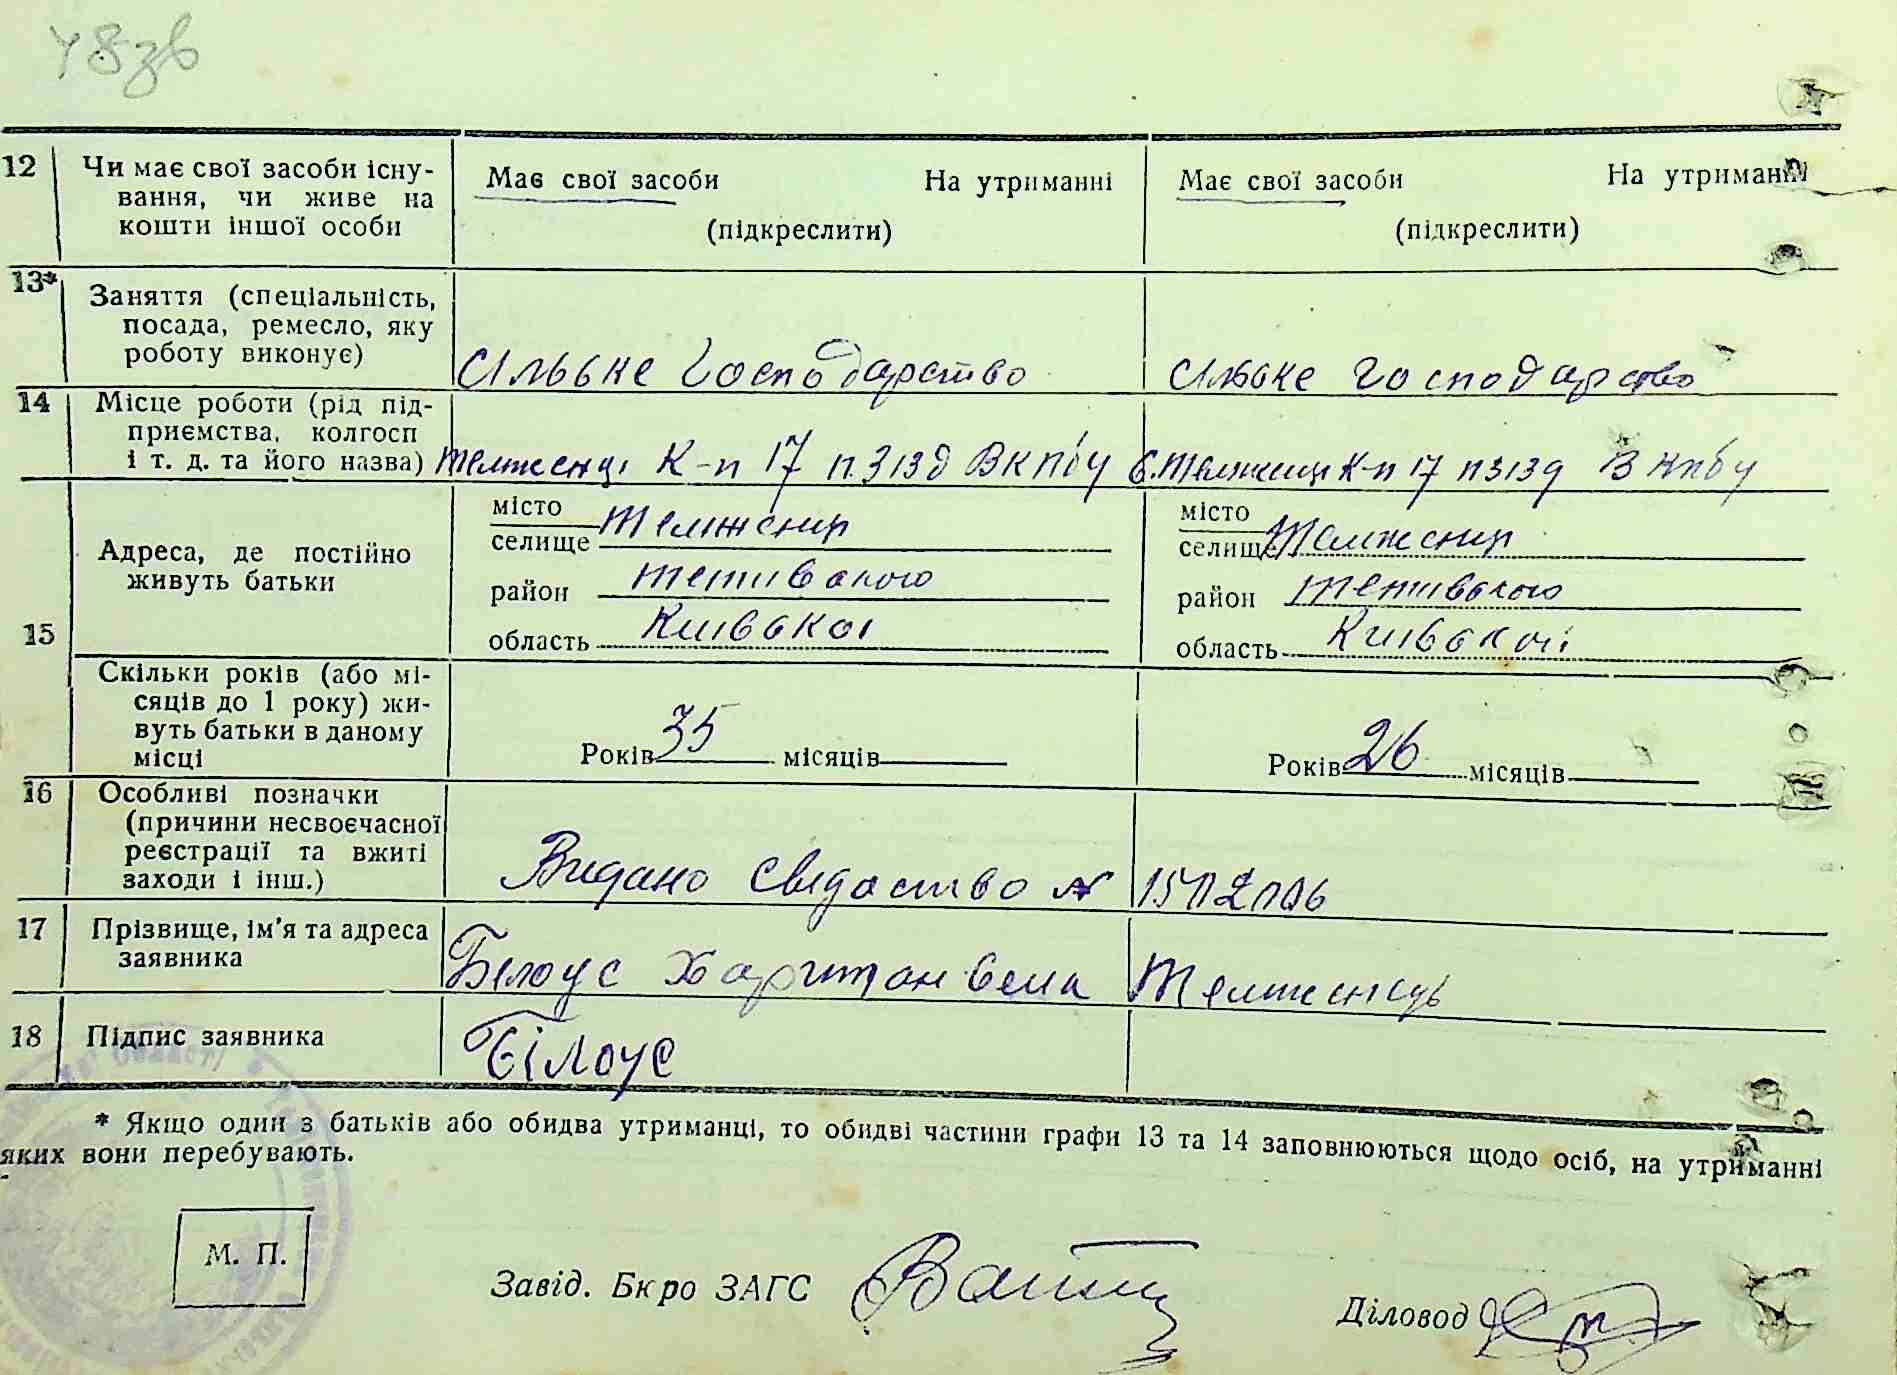 48зв
12 Чи має свої засоби існу-
вання, чи живе на
кошти іншої особи
Має свої засоби На утриманні
(підкреслити)
Має свої засоби На утриманні
(підкреслити)
13* Заняття (спеціальність,
посада, ремесло, яку
роботу виконує)
сільське господарство
сільske господарство
14 Місце роботи (рід під-
приємства, колгосп
і т. д. та його назва)
К-п 17 п.зізд ВКПбУ
К-п 17 пзізд ВКПбУ
15 Адреса, де постійно
живуть батьки
місто
селище
район Тетивського
область Київскоі
місто
селище
район Тетивского
область Київскоі
Скільки років (або мі-
сяців до 1 року) жи-
вуть батьки в даному
місці
Років 35 місяців
Років 26 місяців
16 Особливі позначки
(причини несвоєчасної
реєстрації та вжиті
заходи і інш.)
Видано свідоство №
17 Прізвище, ім'я та адреса
заявника
Белоус Харитан села
18 Підпис заявника
Білоус
* Якщо один з батьків або обидва утриманці, то обидві частини графи 13 та 14 заповнюються щодо осіб, на утриманні
яких вони перебувають.
М. П.
Завід. Бюро ЗАГС
Діловод